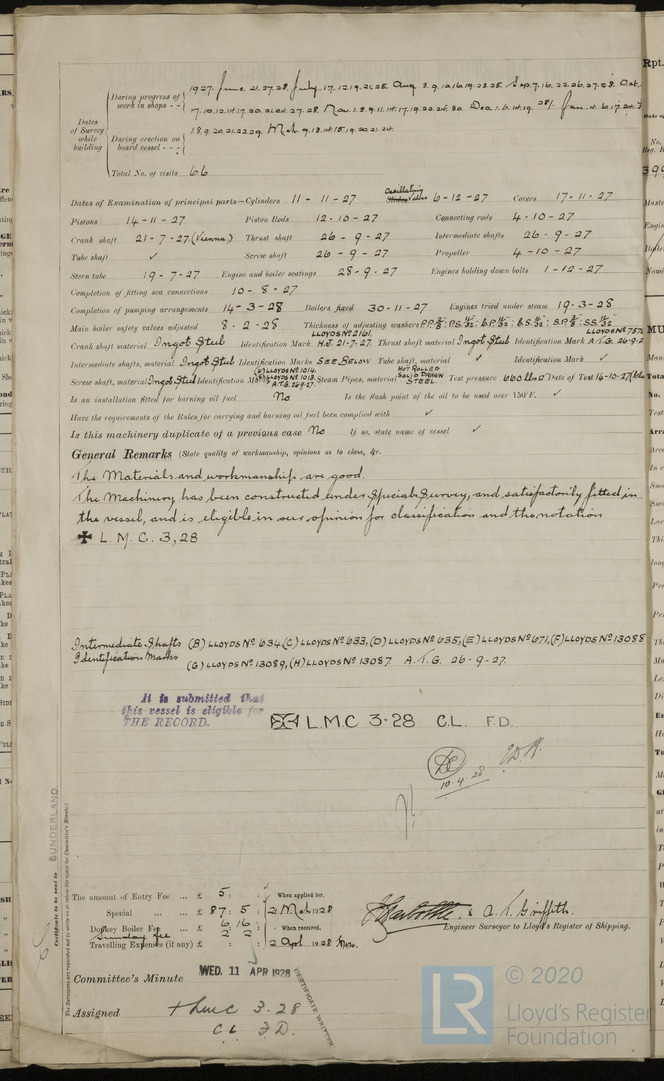 Dates of Survey while building
During progress of work in shops - - 1927. June. 21.27.28. July. 17.12.19.21.25. Aug 3.9.10.16.19.23.25. Sep. 7.16.22.26.27.28. Oct.
7.10.12.14.17.20.21.24.27.28. Nov. 1.8.9.11.14.17.19.22.24.30. Dec. 1.6.14.19.28/. Jan.
During erection on board vessel - - - 1.8.9.20.21.22.29. Mch 9.13.14.15.19.20.21.24.
Total No. of visits 66
Dates of Examination of principal parts—Cylinders 11 - 11 - 27 Oscillating Slides Valves 6 - 12 - 27 Covers 17 - 11 - 27
Pistons 14 - 11 - 27 Piston Rods 12 - 10 - 27 Connecting rods 4 - 10 - 27
Crank shaft 21 - 7 - 27 (Vienna) Thrust shaft 26 - 9 - 27 Intermediate shafts 26 - 9 - 27
Tube shaft ✓ Screw shaft 26 - 9 - 27 Propeller 4 - 10 - 27
Stern tube 19 - 7 - 27 Engine and boiler seatings 28 - 9 - 27 Engines holding down bolts 1 - 12 - 27
Completion of fitting sea connections 10 - 8 - 27
Completion of pumping arrangements 14 - 3 - 28 Boilers fixed 30 - 11 - 27 Engines tried under steam 19 - 3 - 28
Main boiler safety valves adjusted 8 - 2 - 28 Thickness of adjusting washers
Crank shaft material Ingot Steel Identification Mark LLOYDS No 2161. H.J. 21-7-27. Thrust shaft material Ingot Steel Identification Mark A.T.G. 26-9-2
Intermediate shafts, material Ingot Steel Identification Marks SEE BELOW Tube shaft, material ✓ Identification Mark ✓
Screw shaft, material Ingot Steel Identification Mark LLOYDS No 1014. LLOYDS No 1013. A.T.G. 26-9-27. Steam Pipes, material HOT ROLLED SOLID DRAWN STEEL Test pressure 660 lbs □" Date of Test 14-10-27
Is an installation fitted for burning oil fuel No Is the flash point of the oil to be used over 150°F. ✓
Have the requirements of the Rules for carrying and burning oil fuel been complied with ✓
Is this machinery duplicate of a previous case No If so, state name of vessel ✓
General Remarks (State quality of workmanship, opinions as to class, &c.
The Materials and workmanship are good.
The Machinery has been constructed under Special Survey, and satisfactorily fitted in
the vessel, and is eligible in our opinion for classification and the notation
✠ L.M.C. 3,28
Intermediate Shafts (B) LLOYDS No 634, (C) LLOYDS No 633, (D) LLOYDS No 635, (E) LLOYDS No 671, (F) LLOYDS No 13088
Identification Marks (G) LLOYDS No 13089, (H) LLOYDS No 13087. A.T.G. 26-9-27.
It is submitted that
this vessel is eligible for
THE RECORD.
✠ L.M.C 3·28 C.L. F.D.
10.4.28
Certificate to be sent to SUNDERLAND.
The Surveyors are requested not to write on or below the space for Committee's Minute.
The amount of Entry Fee ... £ 5 : : When applied for.
Special ... ... £ 87 : 5 : 21 Mch 1928
Donkey Boiler Fee ... £ 6 : 16 : When received.
Sunday fee 2 2
Travelling Expenses (if any) £ : : 2 Apl. 1928
& A. T. Griffith.
Engineer Surveyor to Lloyd's Register of Shipping.
Committee's Minute WED. 11 APR 1928
Assigned + LMC 3.28
CL F.D.
CERTIFICATE WRITTEN
LR © 2020
Lloyd's Register
Foundation